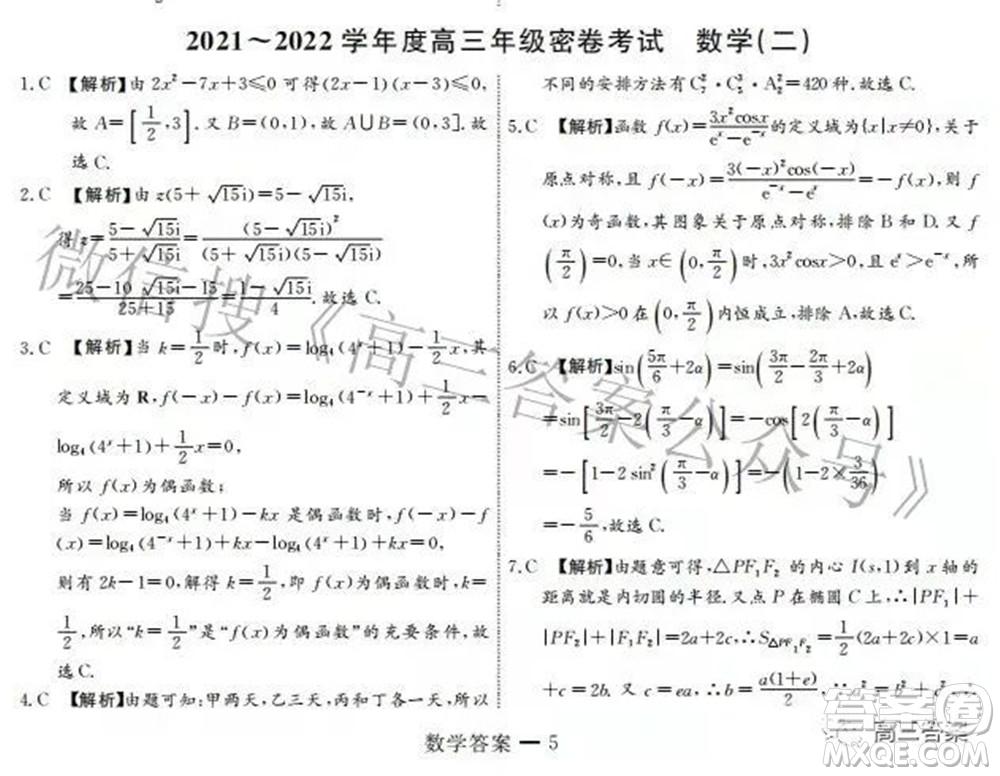 2021～2022 学年度高三年级密卷考试　数学(二)
1.C 【解析】由 2x²－7x＋3≤0 可得(2x－1)(x－3)≤0,
故 A＝[1/2,3]. 又 B＝(0,1), 故 A∪B＝(0,3]. 故
选 C.
2.C 【解析】由 z(5＋√15i)＝5－√15i,
得 z＝(5－√15i)/(5＋√15i)＝(5－√15i)²/((5＋√15i)(5－√15i))
＝(25－10√15i－15)/(25＋15)＝(1－√15i)/4. 故选 C.
3.C 【解析】当 k＝1/2 时, f(x)＝log₄(4ˣ＋1)－1/2x, 其
定义域为 R, f(－x)－f(x)＝log₄(4⁻ˣ＋1)＋1/2x－
log₄(4ˣ＋1)＋1/2x＝0,
所以 f(x)为偶函数;
当 f(x)＝log₄(4ˣ＋1)－kx 是偶函数时, f(－x)－f
(x)＝log₄(4⁻ˣ＋1)＋kx－log₄(4ˣ＋1)＋kx＝0,
则有 2k－1＝0, 解得 k＝1/2, 即"f(x)为偶函数"时, k＝
1/2, 所以"k＝1/2"是"f(x)为偶函数"的充要条件, 故
选 C.
4.C 【解析】由题可知:甲两天,乙三天,丙和丁各一天,
不同的安排方法有 C₇²·C₅³·A₂²＝420 种. 故选 C.
5.C 【解析】函数 f(x)＝3x²cosx/(eˣ－e⁻ˣ)的定义域为{x|x≠0}, 关于
原点对称, 且 f(－x)＝3(－x)²cos(－x)/(e⁻ˣ－eˣ)＝－f(x), 则 f(x)
为奇函数, 其图象关于原点对称, 排除 B 和 D. 又 f
(π/2)＝0, 当 x∈(0,π/2)时, 3x²cosx＞0, eˣ＞e⁻ˣ, 所
以 f(x)＞0 在(0,π/2)内恒成立, 排除 A, 故选 C.
6.C 【解析】sin(5π/6＋2α)＝sin(3π/2－2π/3＋2α)
＝sin[3π/2－2(π/3－α)]＝－cos[2(π/3－α)]
＝－[1－2sin²(π/3－α)]＝－(1－2×3/36)
＝－5/6, 故选 C.
7.C 【解析】由题意可得, △PF₁F₂ 的内心 I(s,1)到 x 轴的
距离就是内切圆的半径. 又点 P 在椭圆 C 上, ∴|PF₁|＋
|PF₂|＋|F₁F₂|＝2a＋2c, ∴S△PF₁F₂＝1/2(2a＋2c)×1＝a
＋c＝2b. 又 e＝c/a, c＝ea, ∴b＝a(1＋e)/2,
数学答案 － 5
微信搜《高三答案公众号》
高三答案
MXQE.COM